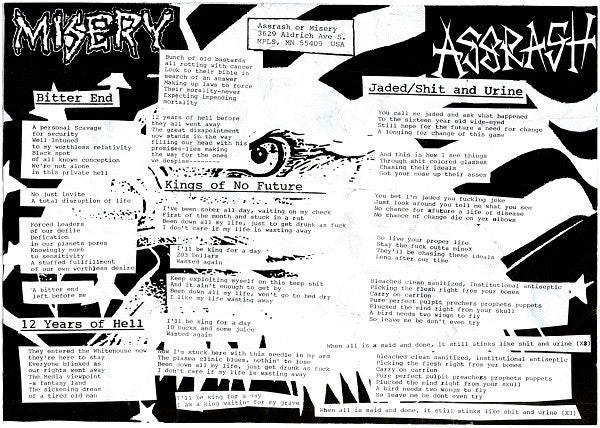 MISERY
Assrash or Misery
3629 Aldrich Ave S.
MPLS, MN 55409 USA
ASSRASH
Bitter End
A personal Scavage
for security
Well Intuned
to my worthless relativity
Black spot
of all known conception
We're not alone
in this private hell
No just invite
A total disruption of life
Forced leaders
of our defile
Defication
in our planets pores
Knowingly numb
to sensitivity
A stuffed fulfillment
of our own worthless desire
A bitter end
left before me
12 Years of Hell
They entered the Whitehouse now
they're here to stay
Everyone blinked as
our rights went away
The Media viewpoint
-a fantasy land
The sickening dream
of a tired old man
Bunch of old bastards
all rotting with cancer
Look to their bible in
search of an answer
Making up laws to force
Their morality-never
Expecting impending
mortality
12 years of hell before
they all went away
The great disapointment
now stands in the way
filling our head with his
promises-lies making
the way for the ones
we despise
Kings of No Future
I've been sober all day, waiting on my check
First of the month and stuck in a
Been down all my life, just to get drunk as fuck
I don't care if my life is wasting away
I'll be king for a day
203 Dollars
Wasted again
Keep exploiting myself on this temp shit
And it ain't enough to get by
Been down all my life, won't go to bed dry
I like my life wasting away
I'll be king for a day
10 bucks and some juice
Wasted again
Now I'm stuck here with this needle in my arm
The plasma clinic blues, nothin' to lose
Been down all my life, just get drunk as fuck
I don't care if my life is wasting away
I'll be king for a day
I am a king waiting for my grave
Jaded/Shit and Urine
You call me jaded and ask what happened
To the sixteen year old wide-eyed
Still hope for the future a need for change
A longing for change of this game
And this is how I see things
Through shit colored glasses
Chasing their ideals
Got your nose up their asses
You bet I'm jaded you fucking joke
Just look around you tell me what you see
No chance for a future a life of disease
No chance of change die on yer
So live your proper life
Stay the fuck outta mine
They'll be chasing these ideals
Long after our time
Bleached clean sanitized, institutional antiseptic
Picking the flesh right from your bones
Carry on carrion
Pure perfect pulpit preachers prophets puppets
Plucked the mind right from your skull
A bird needs two wings to fly
So leave me be don't even try
When all is a said and done, it still stinks like shit and urine
Bleached clean sanitized, institutional antiseptic
Picking the flesh right from yer bones
Carry on carrion
Pure perfect pulpit preachers prophets puppets
Plucked the mind right from your skull
A bird needs two wings to fly
So leave me be dont even try
When all is said and done, it still stinks like shit and urine (X3)